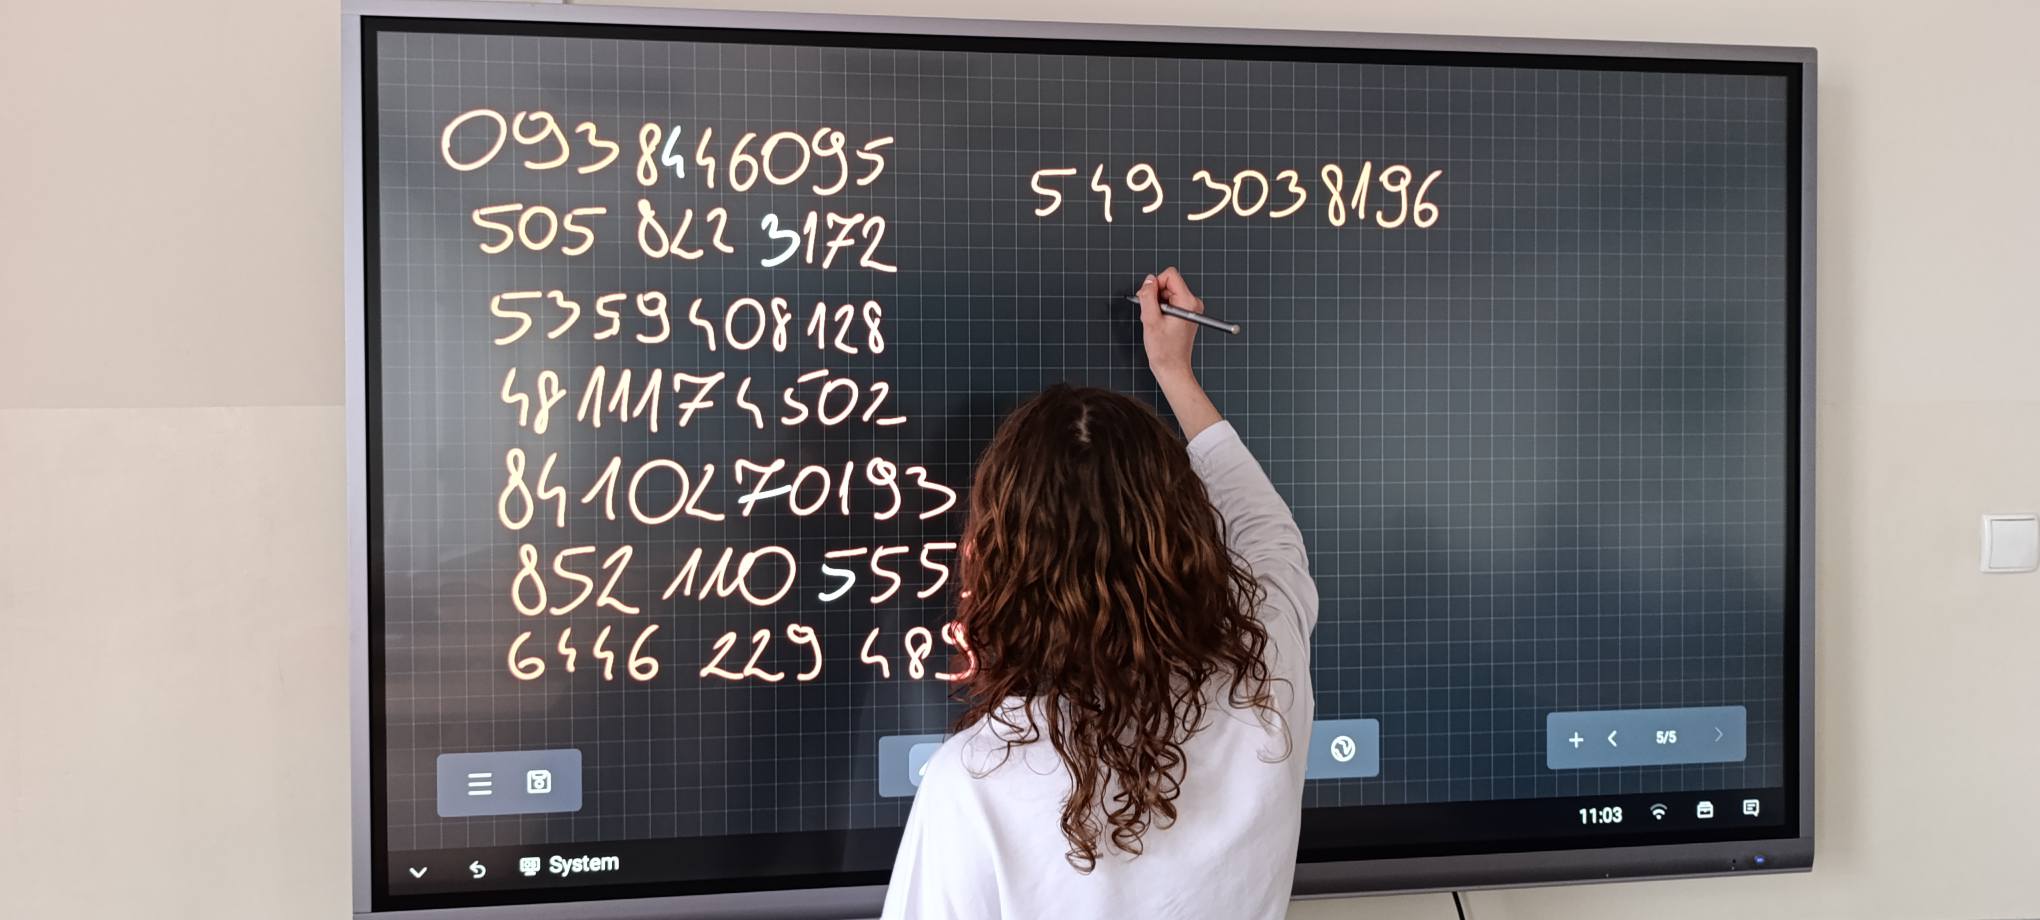 093 8446095
505 822 3172
5359 408 128
48 1117 4 502
8410270193
852 110 555
6446 229 489
549 303 8196
5/5
11:03
System